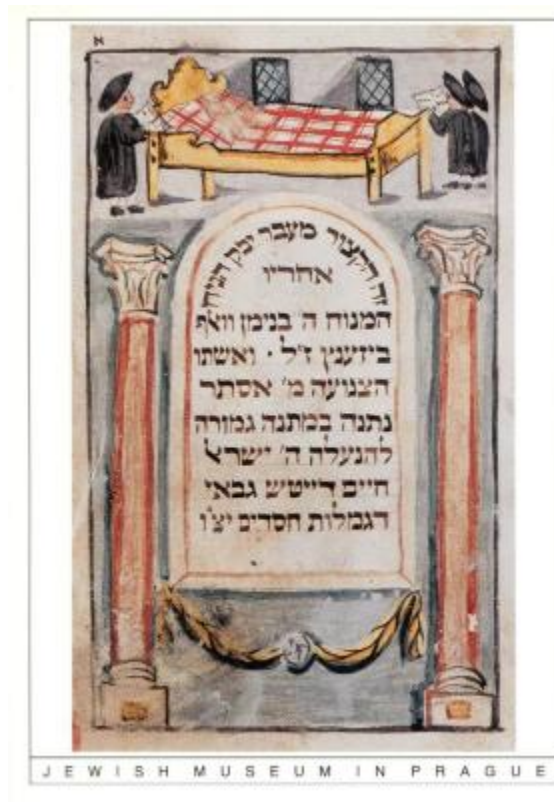 א
זה הקצור מעבר יבק הניח
אחריו
המנוח ה' בנימן וואף
ביזענץ ז"ל · ואשתו
הצנועה מ' אסתר
נתנה במתנה גמורה
להנעלה ה' ישראל
חיים דייטש גבאי
דגמלות חסדים יצ"ו
JEWISH MUSEUM IN PRAGUE